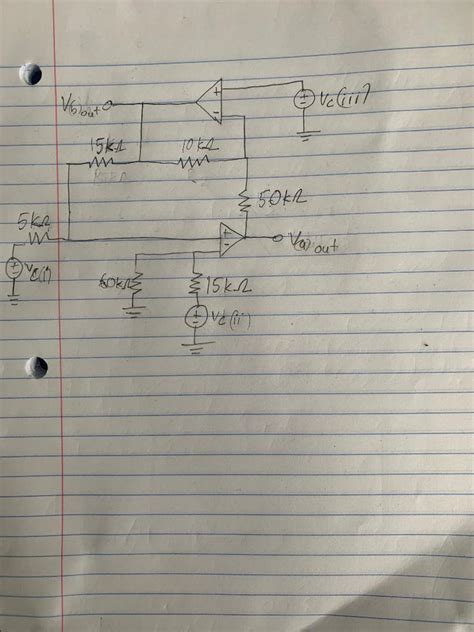 V(b)out
+
-
+
-
Vc(iii)
15kΩ
10kΩ
50kΩ
5kΩ
+
-
V(a)out
+
-
60kΩ
15kΩ
+
-
Vc(ii)